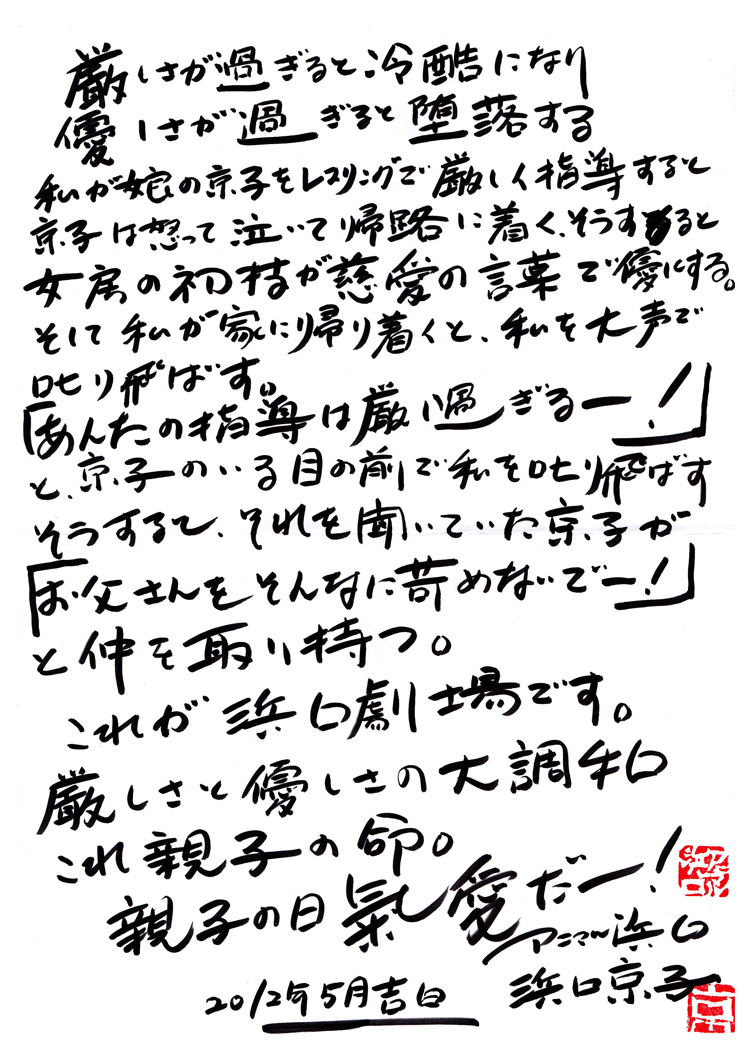 厳しさが過ぎると冷酷になり
優しさが過ぎると堕落する
私が娘の京子をレスリングで厳しく指導すると
京子は怒って泣いて帰路に着く、そうすると
女房の初枝が慈愛の言葉で優にする。
そして私が家に帰り着くと、私を大声で
叱り飛ばす。
「あんたの指導は厳し過ぎるー!」
と、京子のいる目の前で私を叱り飛ばす
そうすると、それを聞いていた京子が
「お父さんをそんなに苛めないでー!」
と仲を取り持つ。
これが浜口劇場です。
厳しさと優しさの大調和
これ親子の命。
親子の日氣愛だー!
アニマル浜口
浜口京子
2012年5月吉日
京